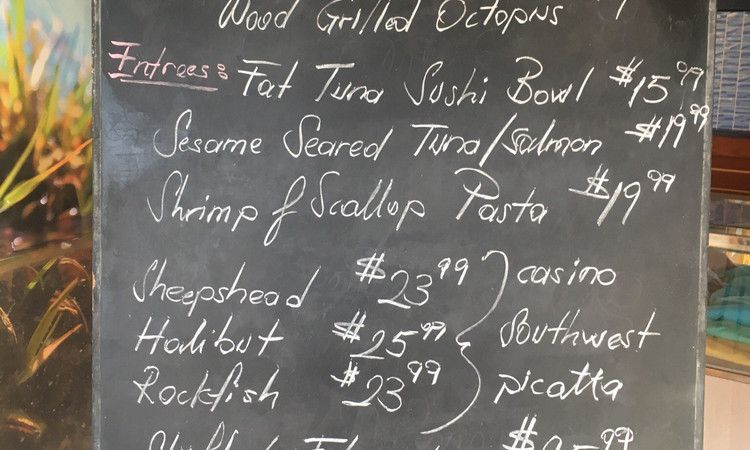 Wood Grilled Octopus
Entrees: Fat Tuna Sushi Bowl $15.99
Sesame Seared Tuna/Salmon $19.99
Shrimp & Scallop Pasta $19.99
Sheepshead $23.99 } casino
Halibut $25.99 southwest
Rockfish $23.99 picatta